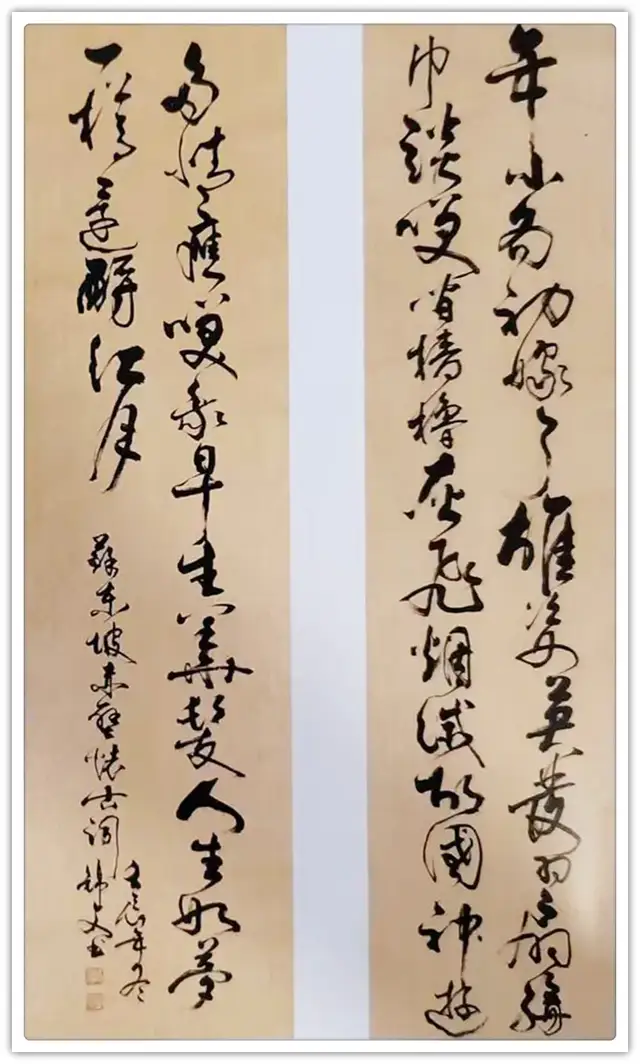 年小喬初嫁了雄姿英發羽扇綸
巾談笑間檣櫓灰飛烟滅故國神遊
多情應笑我早生華髮人生如夢
一樽還酹江月
蘇東坡赤壁懷古詞
壬辰年冬
錦文书